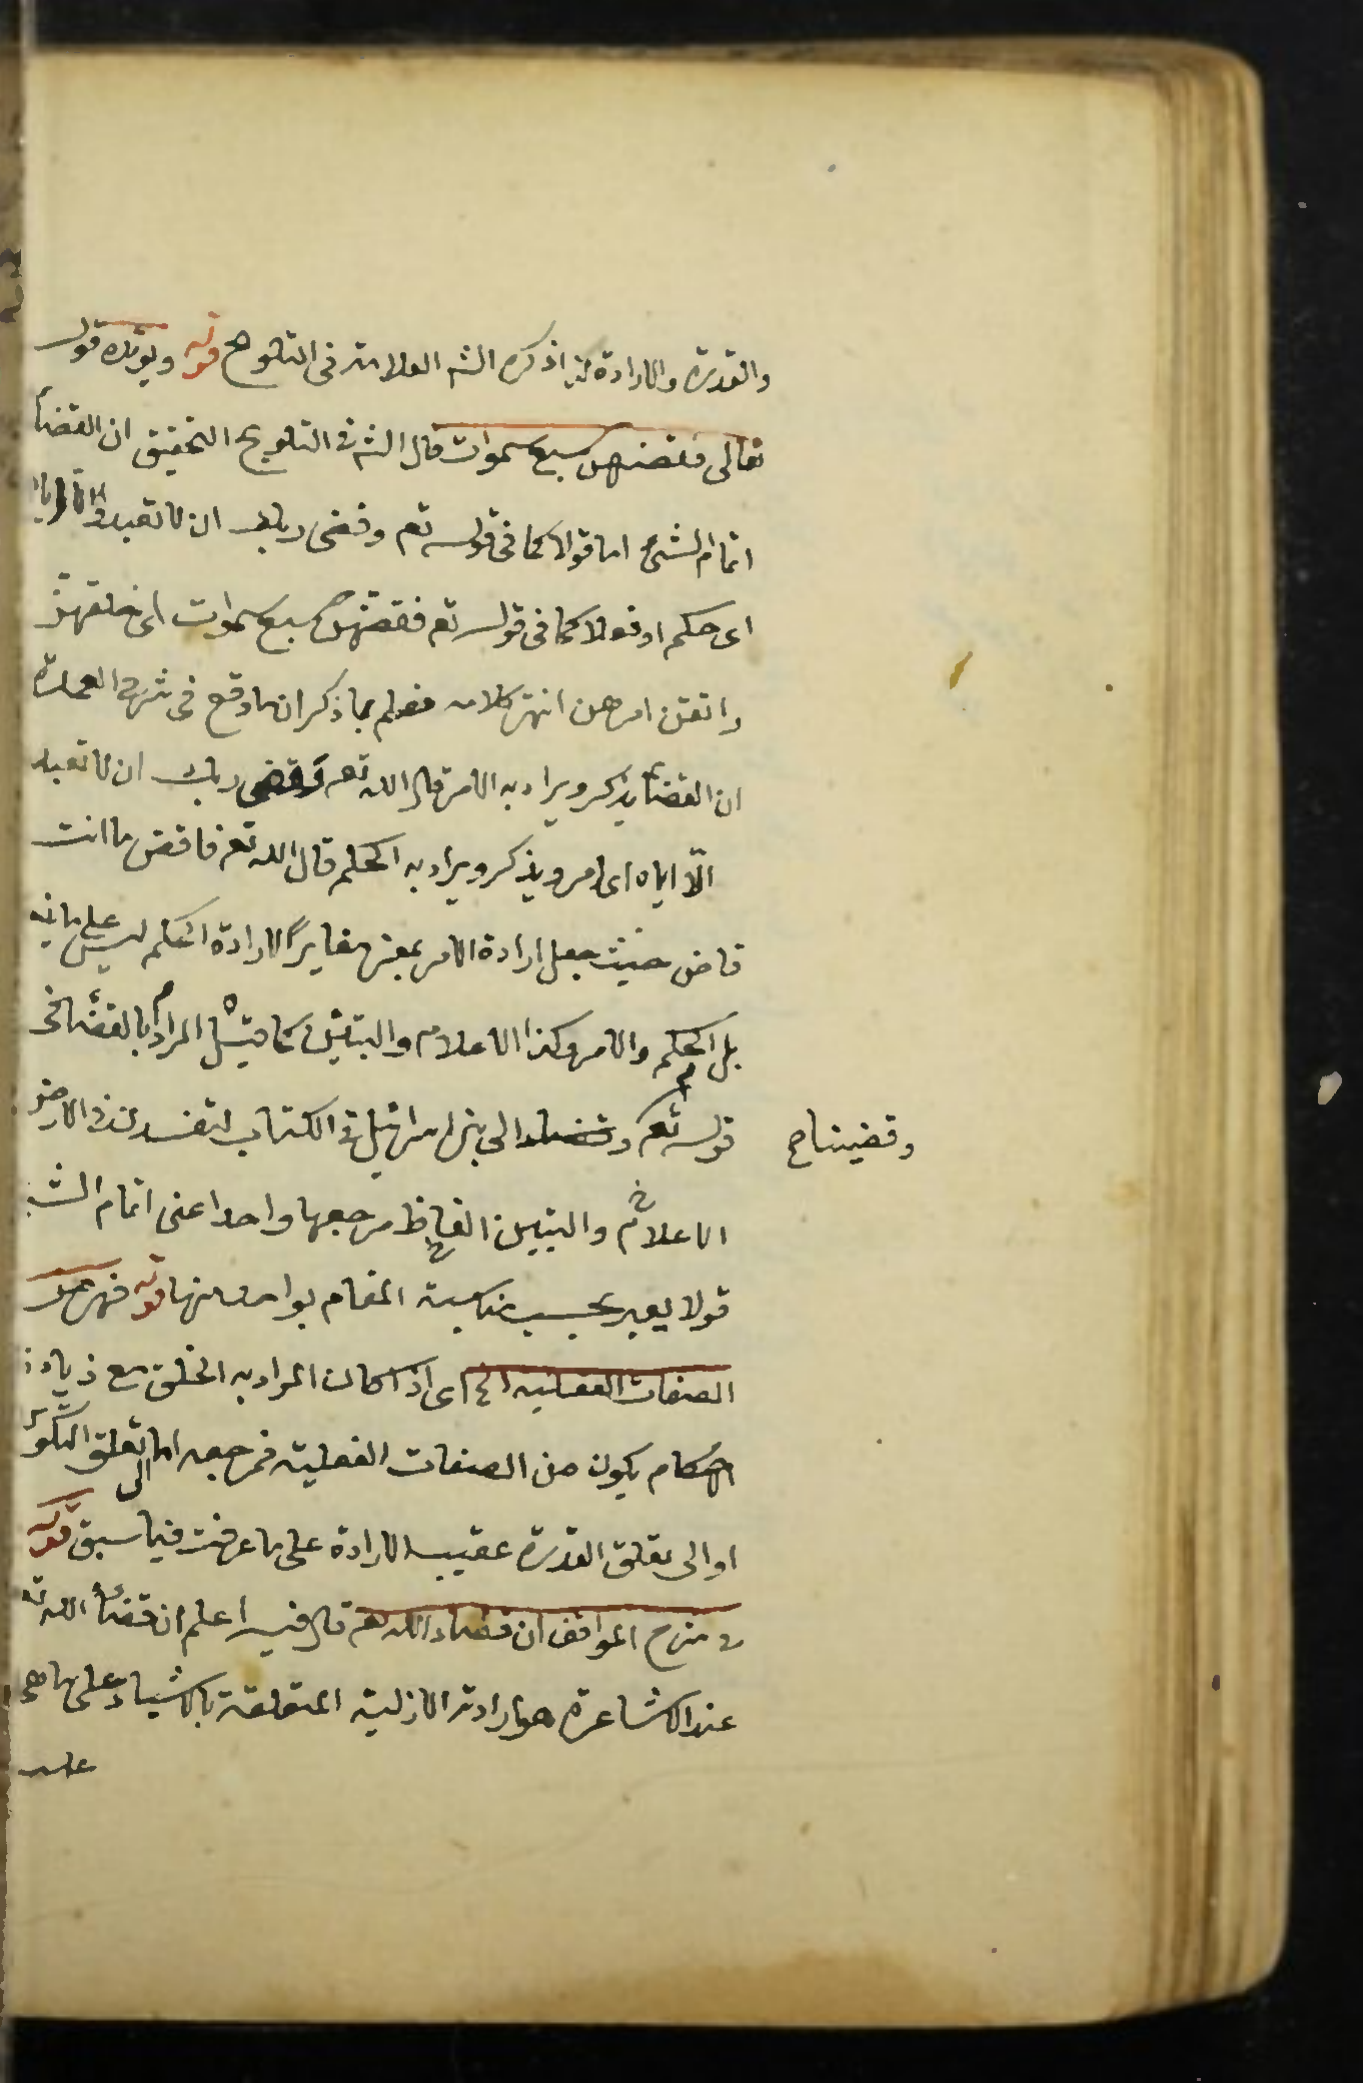 والقدرة والارادة كذا ذكره الش العلامة فى التلويح قوله ويؤيده قوله
تعالى فقضهن سبع سموات قال الش فى التلويح التحقيق ان القضأ
اتمام الشئ اما قولا كما فى قوله تع وقضى ربك ان لا تعبدوا الا اياه
اى حكم او فعلا كما فى قوله تع فقضهن سبع سموات اى خلقهن
واتقن امرهن انتهى كلامه فعلم بما ذكر ان ما وقع فى شرح العمدة
ان القضأ يذكر ويراد به الامر قال الله تع وقضى ربك ان لا تعبد
الّا اياه اى امر ويذكر ويراد به الحكم قال الله تع فاقض ما انت
قاض حيث جعل ارادة الامر بمعنى مغايرًا لارادة الحكم ليس على ما ينبغى
بل الحكم والامر وكذا الاعلام والتبيين كما قيل المراد بالقضأ فى
قوله تع وقضينا الى بنى اسرائيل فى الكتاب لتفسدن فى الارض
وقضينا ح
الاعلام والتبيين الفاظ مرجعها واحد اعنى اتمام الشئ
قولا يعبر بحسب مناسبة المقام بواحد منها قوله فهو من
الصفات الفعلية الخ اى اذا كان المراد به الخلق مع زيادة
احكام يكون من الصفات الفعلية فمرجعه اما الى تعلق التكوين
او الى تعلق القدرة عقيب الارادة على ما عرفت فيما سبق قوله
فى شرح المواقف ان قضاء الله تع قال فيه اعلم ان قضأ الله تع
عند الاشاعرة هو ارادته الازلية المتعلقة بالاشياء على ما هى
عليه